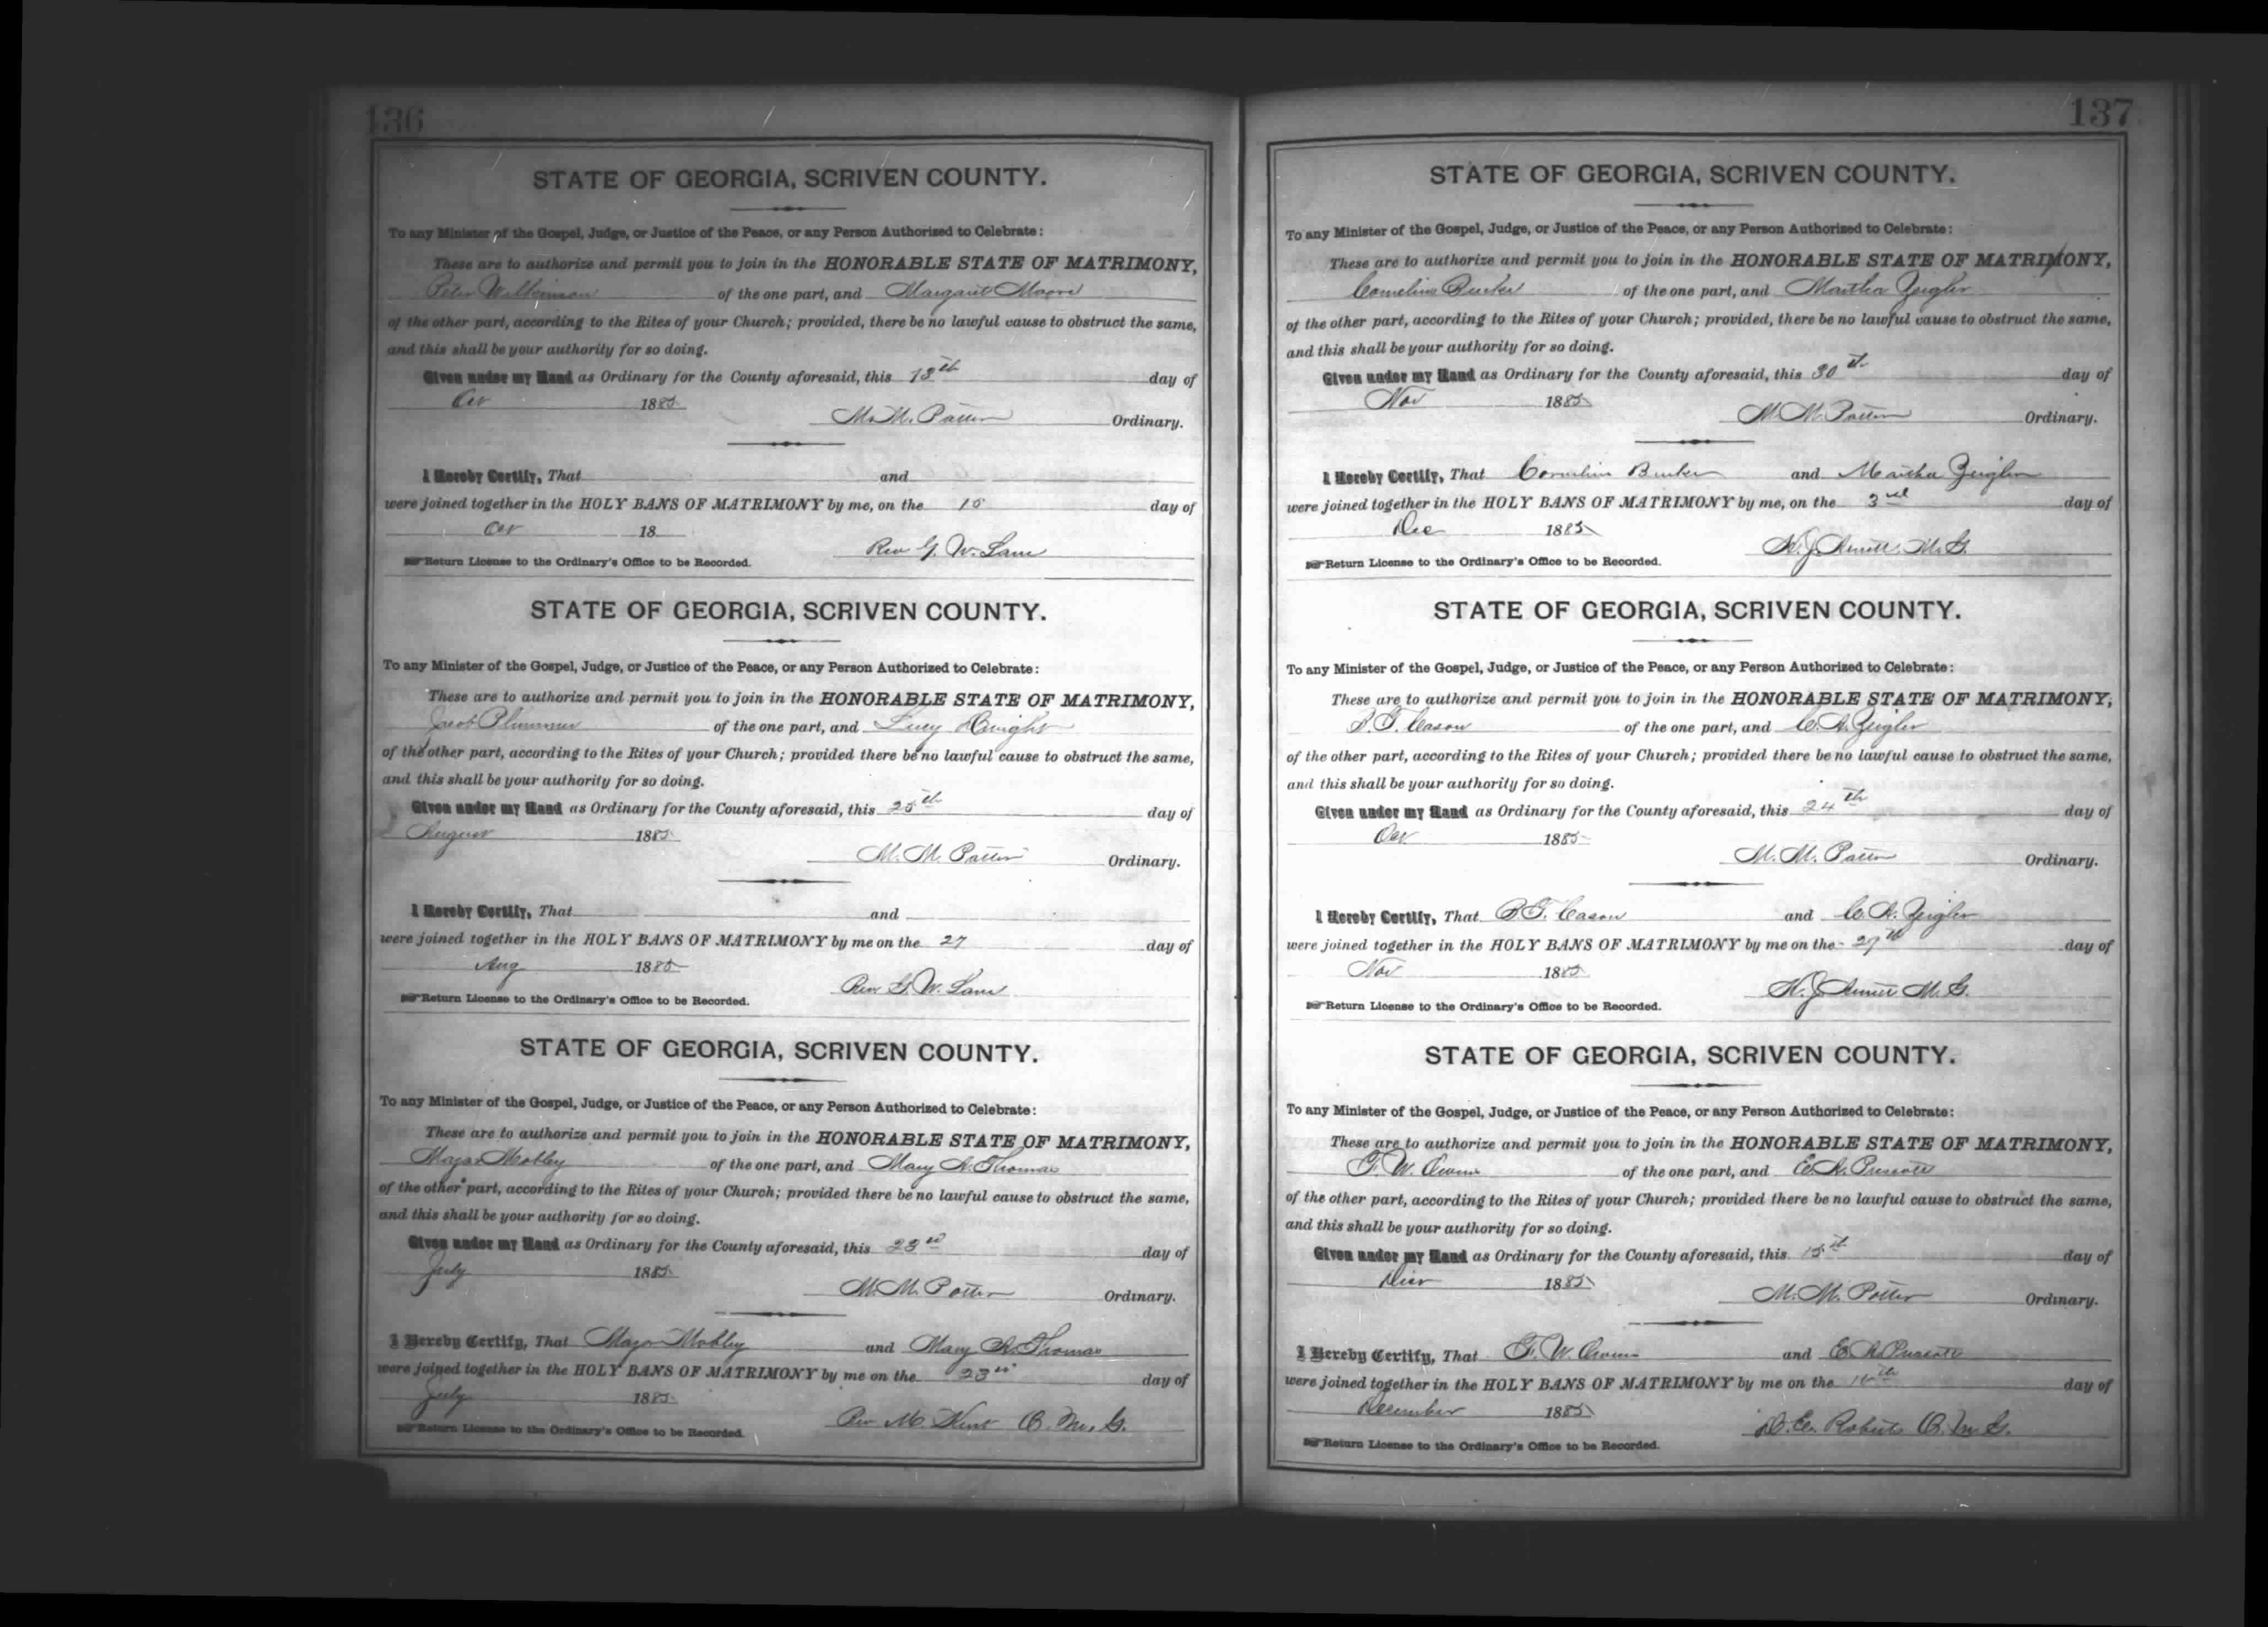 136
STATE OF GEORGIA, SCRIVEN COUNTY.
To any Minister of the Gospel, Judge, or Justice of the Peace, or any Person Authorized to Celebrate:
These are to authorize and permit you to join in the HONORABLE STATE OF MATRIMONY,
Peter Wilkinson of the one part, and Margaret Moore
of the other part, according to the Rites of your Church; provided, there be no lawful cause to obstruct the same,
and this shall be your authority for so doing.
Given under my Hand as Ordinary for the County aforesaid, this 13th day of
Oct 1885
M. M. Potter Ordinary.
I Hereby Certify, That and
were joined together in the HOLY BANS OF MATRIMONY by me, on the 15 day of
Oct 18
Rev G. W. Lane
Return License to the Ordinary's Office to be Recorded.
STATE OF GEORGIA, SCRIVEN COUNTY.
To any Minister of the Gospel, Judge, or Justice of the Peace, or any Person Authorized to Celebrate:
These are to authorize and permit you to join in the HONORABLE STATE OF MATRIMONY,
Jacob Plummer of the one part, and Lucy
of the other part, according to the Rites of your Church; provided there be no lawful cause to obstruct the same,
and this shall be your authority for so doing.
Given under my Hand as Ordinary for the County aforesaid, this 25th day of
August 1885
M. M. Potter Ordinary.
I Hereby Certify, That and
were joined together in the HOLY BANS OF MATRIMONY by me on the 27 day of
Aug 1885
Rev G. W. Lane
Return License to the Ordinary's Office to be Recorded.
STATE OF GEORGIA, SCRIVEN COUNTY.
To any Minister of the Gospel, Judge, or Justice of the Peace, or any Person Authorized to Celebrate:
These are to authorize and permit you to join in the HONORABLE STATE OF MATRIMONY,
Major Mobley of the one part, and Mary A. Thomas
of the other part, according to the Rites of your Church; provided there be no lawful cause to obstruct the same,
and this shall be your authority for so doing.
Given under my Hand as Ordinary for the County aforesaid, this 23rd day of
July 1885
M. M. Potter Ordinary.
I Hereby Certify, That Major Mobley and Mary A. Thomas
were joined together in the HOLY BANS OF MATRIMONY by me on the 23rd day of
July 1885
Rev M. Kent O. M. G.
Return License to the Ordinary's Office to be Recorded.
137
STATE OF GEORGIA, SCRIVEN COUNTY.
To any Minister of the Gospel, Judge, or Justice of the Peace, or any Person Authorized to Celebrate:
These are to authorize and permit you to join in the HONORABLE STATE OF MATRIMONY,
Cornelius Burke of the one part, and Martha Zeigler
of the other part, according to the Rites of your Church; provided, there be no lawful cause to obstruct the same,
and this shall be your authority for so doing.
Given under my Hand as Ordinary for the County aforesaid, this 30th day of
Nov 1885
M. M. Potter Ordinary.
I Hereby Certify, That Cornelius Burke and Martha Zeigler
were joined together in the HOLY BANS OF MATRIMONY by me, on the 3rd day of
Dec 1885
M. G.
Return License to the Ordinary's Office to be Recorded.
STATE OF GEORGIA, SCRIVEN COUNTY.
To any Minister of the Gospel, Judge, or Justice of the Peace, or any Person Authorized to Celebrate:
These are to authorize and permit you to join in the HONORABLE STATE OF MATRIMONY,
B. G. Cason of the one part, and C. A. Zeigler
of the other part, according to the Rites of your Church; provided there be no lawful cause to obstruct the same,
and this shall be your authority for so doing.
Given under my Hand as Ordinary for the County aforesaid, this 24th day of
Oct 1885
M. M. Potter Ordinary.
I Hereby Certify, That B. G. Cason and C. A. Zeigler
were joined together in the HOLY BANS OF MATRIMONY by me on the 29th day of
Nov 1885
M. G.
Return License to the Ordinary's Office to be Recorded.
STATE OF GEORGIA, SCRIVEN COUNTY.
To any Minister of the Gospel, Judge, or Justice of the Peace, or any Person Authorized to Celebrate:
These are to authorize and permit you to join in the HONORABLE STATE OF MATRIMONY,
of the one part, and E. A. Prescott
of the other part, according to the Rites of your Church; provided there be no lawful cause to obstruct the same,
and this shall be your authority for so doing.
Given under my Hand as Ordinary for the County aforesaid, this 15th day of
1885
M. M. Potter Ordinary.
I Hereby Certify, That and E. A. Prescott
were joined together in the HOLY BANS OF MATRIMONY by me on the day of
December 1885
Roberts O. M. G.
Return License to the Ordinary's Office to be Recorded.